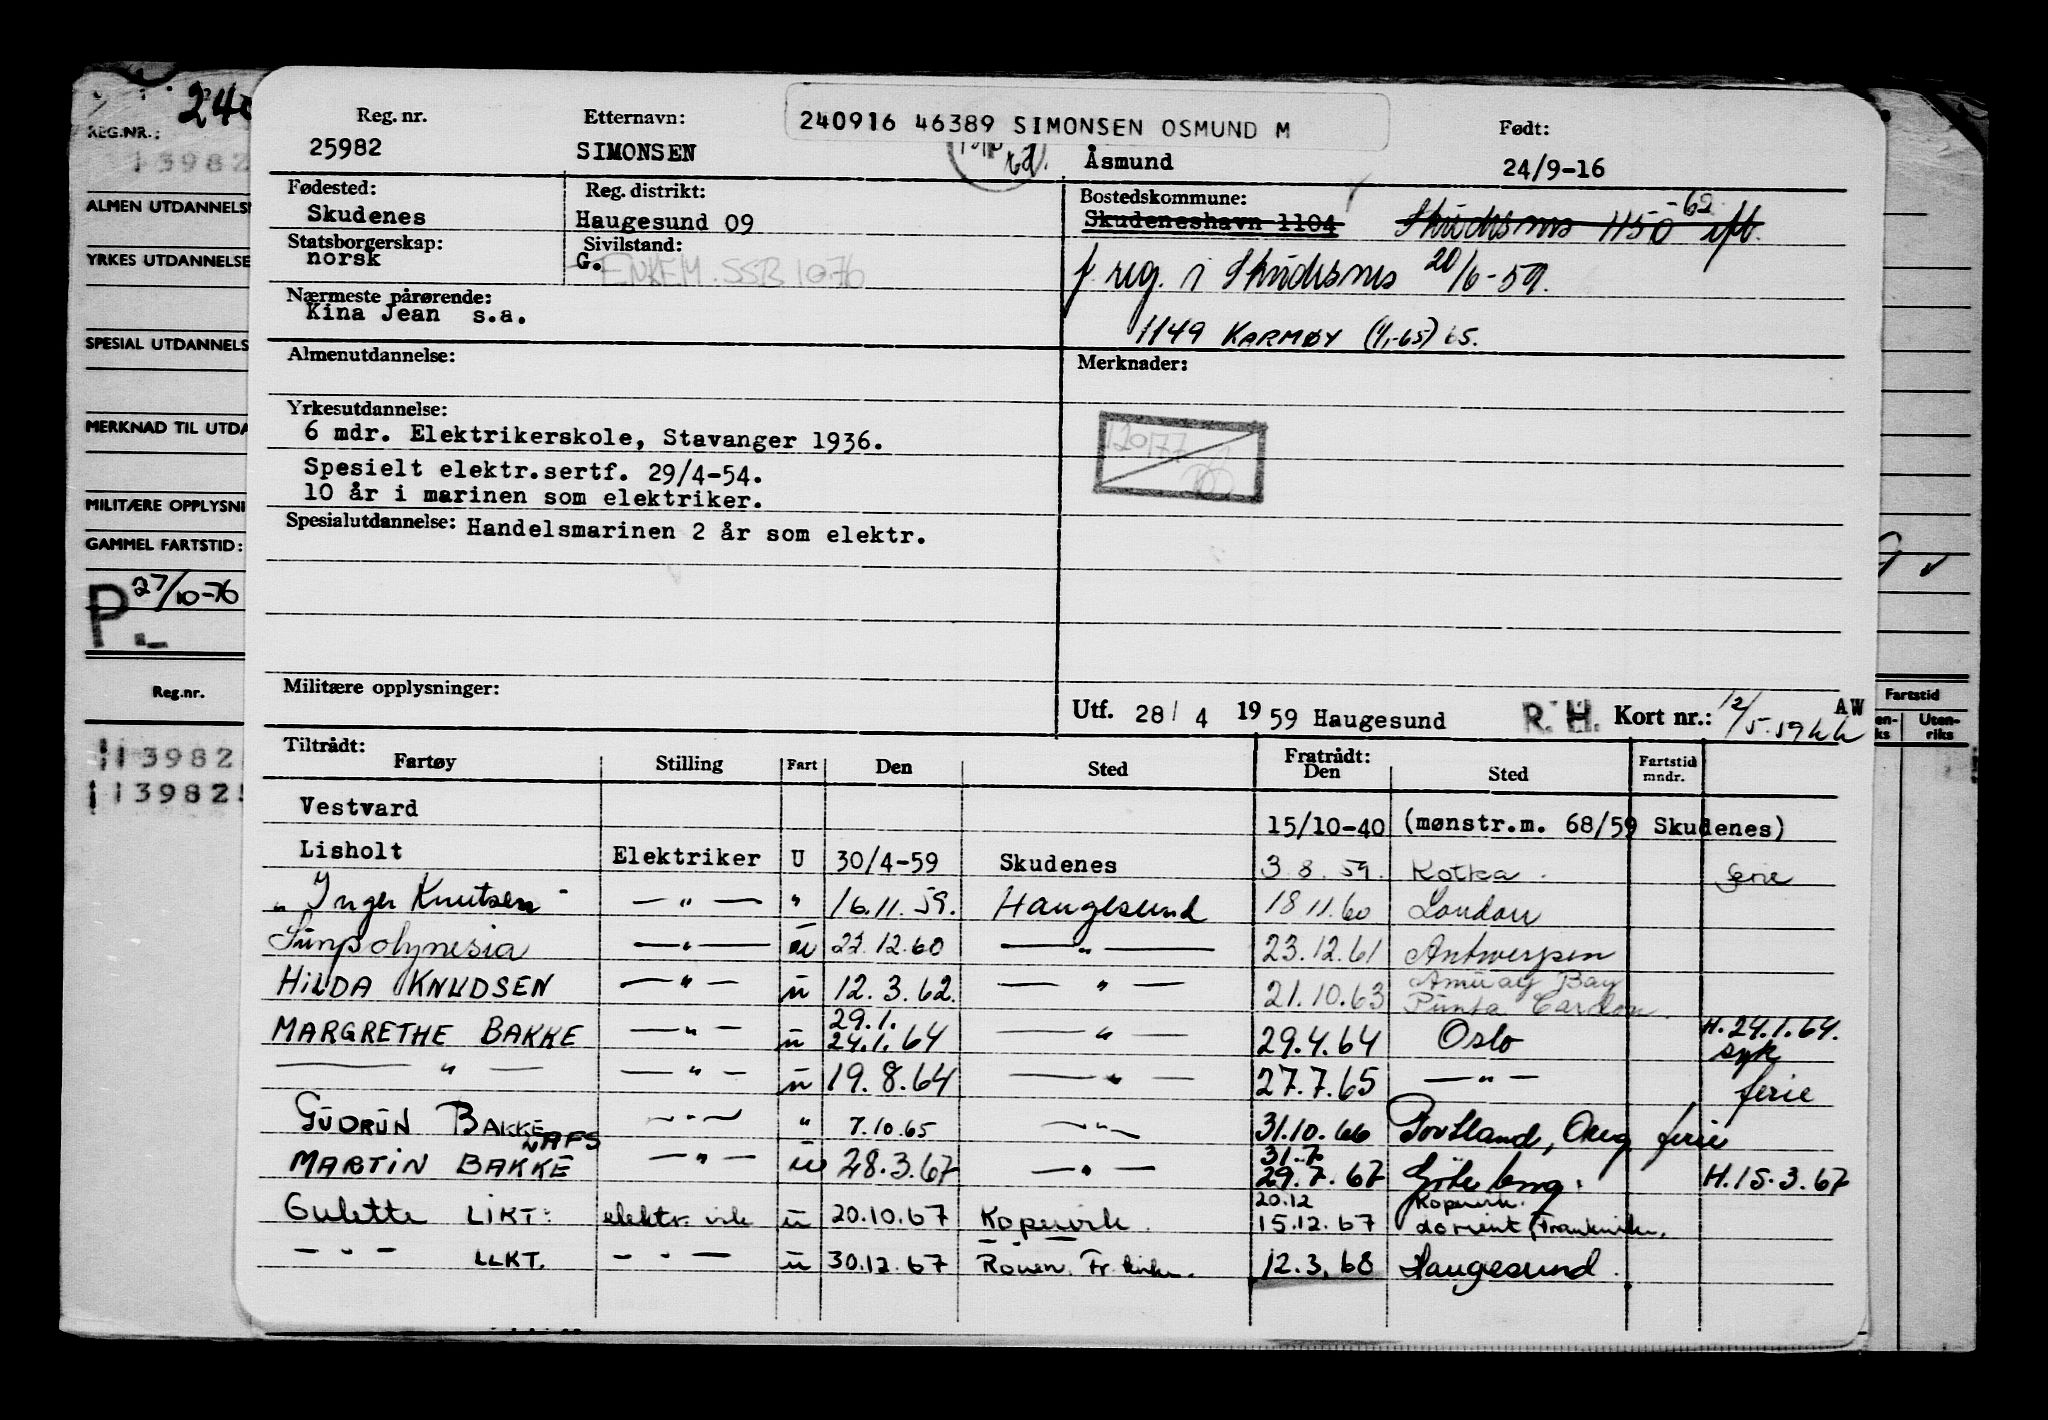 240916 46389 SIMONSEN OSMUND M
Reg. nr. Etternavn: Født:
25982 SIMONSEN Åsmund 24/9-16
Fødested: Reg. distrikt: Bostedskommune:
Skudenes Haugesund 09 Skudeneshavn 1104 Skudesnes 1150 -62
Statsborgerskap: Sivilstand:
norsk G. ENKEM. SSB 1076 f. reg. i Skudesnes 20/6-59.
Nærmeste pårørende:
Kina Jean s.a. 1149 KARMØY (1/1-65) 65.
Almenutdannelse: Merknader:
Yrkesutdannelse:
6 mdr. Elektrikerskole, Stavanger 1936.
Spesielt elektr.sertf. 29/4-54.
10 år i marinen som elektriker.
Spesialutdannelse: Handelsmarinen 2 år som elektr.
Militære opplysninger:
Utf. 28/4 1959 Haugesund R. H. Kort nr.: 12/5-59 AW
Tiltrådt: Fratrådt:
Fartøy Stilling Fart Den Sted Den Sted Fartstid mndr.
Vestvard 15/10-40 (mønstr.m. 68/59 Skudenes)
Lisholt Elektriker U 30/4-59 Skudenes 3.8.59. Kotka. ferie
"Inger Knutsen" — " — " 16.11.59. Haugesund 18.11.60 London
Sunpolynesia — " — u 22.12.60 — " — 23.12.61 Antwerpen
HILDA KNUDSEN — " — u 12.3.62. — " — 21.10.63 Amuay Bay
Punta Cardon.
29.1.
MARGRETHE BAKKE — " — u 24.1.64 — " — 29.4.64 Oslo H.24.1.64. syk
— " — — " — u 19.8.64 — " — 27.7.65 — " — ferie
GUDRUN BAKKE — " — " 7.10.65 — " — 31.10.66 Portland, Oreg ferie
31.7.
MARTIN BAKKE — " — u 28.3.67 — " — 29.7.67 Göteborg. H.15.3.67
20.12 Kopervik.
Gulette LIKT: elektr. u 20.10.67 Kopervik. 15.12.67 Lorient, Frankrike.
— " — LLKT. — " — u 30.12.67 Rouen. Fr.krike. 12.3.68 Haugesund.
REG.NR.:
13982
ALMEN UTDANNELS
YRKES UTDANNELSE
SPESIAL UTDANNELS
MERKNAD TIL UTDA
MILITÆRE OPPLYSNI
GAMMEL FARTSTID:
P 27/10-76
Reg.nr.
13982
139825
Fartstid
Uten-
riks